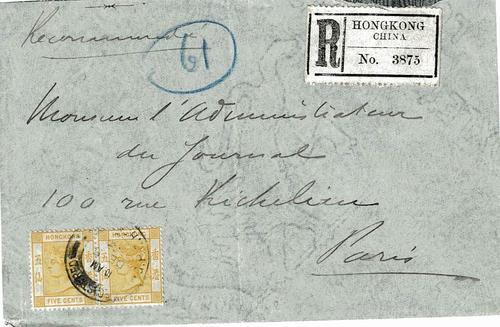 Recommandé
61
R
HONGKONG
CHINA
No. 3875
Monsieur l'Administrateur
du Journal
100 rue Richelieu
Paris
HONGKONG
FIVE CENTS
FIVE CENTS